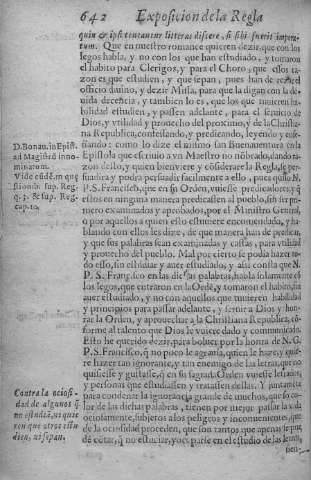 642 Exposicion de la Regla
quin & ipsi teneantur litteras discere, si sibi fuerit impera-
tum. Que en nuestro romance quieren dezir, que con los
legos habla, y no con los que han estudiado, y tomaron
el habito para Clerigos, y para el Choro, que essos ra-
zon es que estudien, y que sepan, pues han de rezar el
officio diuino, y dezir Missa, para que la digan con la de-
uida decencia, y tambien lo es, que los que tuuieren ha-
bilidad estudien, y passen adelante, para el seruicio de
Dios, y vtilidad y prouecho del proximo, y de la Christia-
na Republica, confessando, y predicando, leyendo y en-
señando: como lo dize el mismo San Buenauentura en la
Epistola que escriuio a vn Maestro no nōbrado, dando ra-
zon desto, y quien bien viere y cōsiderare la Regla, se per-
suadira y podra persuadir facilmente a ello, pues quiso N.
P. S. Francisco, que en su Orden, vuiesse predicadores, y q̄
estos en ninguna manera predicassen al pueblo, sin ser pri-
mero examinados y aprobados, por el Ministro General,
o por aquellos a quien esto estuuiere encomendado, y ha-
blando con ellos les dize, de que manera han de predicar,
y que sus palabras sean examinadas y castas, para vtilidad
y prouecho del pueblo. Mal por cierto se podia hazer to-
do esso, sin estudiar y auer estudiado, y assi consta que N.
P. S. Francisco en las dichas palabras, habla solamente con
los legos, que entraron en la Ordē, y tomaron el habito, sin
auer estudiado, y no con aquellos que tuuieren habilidad
y principios para passar adelante, y seruir a Dios y hon-
rar la Orden, y aprouechar a la Christiana Republica, con-
forme al talento que Dios le vuiere dado y comunicado.
Esto he querido dezir, para boluer por la honra de N. G.
P. S. Francisco, q̄ no poco le agrauia, quien le haze, y quie-
re hazer tan ignorante, y tan enemigo de las letras, que no
quisiesse y gustasse, q̄ en su sagrad. Orden vuiesse letrados,
y personas que estudiassen y tratassen dellas. Y juntamente
para condenar la ignorancia grande de muchos, que so co-
lor de las dichas palabras, tienen por mejor passar la vida
ociosamente, subjetos a los peligros y inconuenientes, que
de la ociosidad proceden, que son tantos que apenas se pue-
de cōtar, q̄ no estudiar, y ocuparse en el estudio de las letras,
D. Bonau. in Epist.
ad Magistrū inno-
minatum.
Vide eūdē. in que
stionib. sup. Reg.
q. 3. & sup. Reg.
cap. 10.
Contra la ociosi-
dad de algunos q̄
no estudiā, ni quie
ren que otros estu
dien, ni sepan.